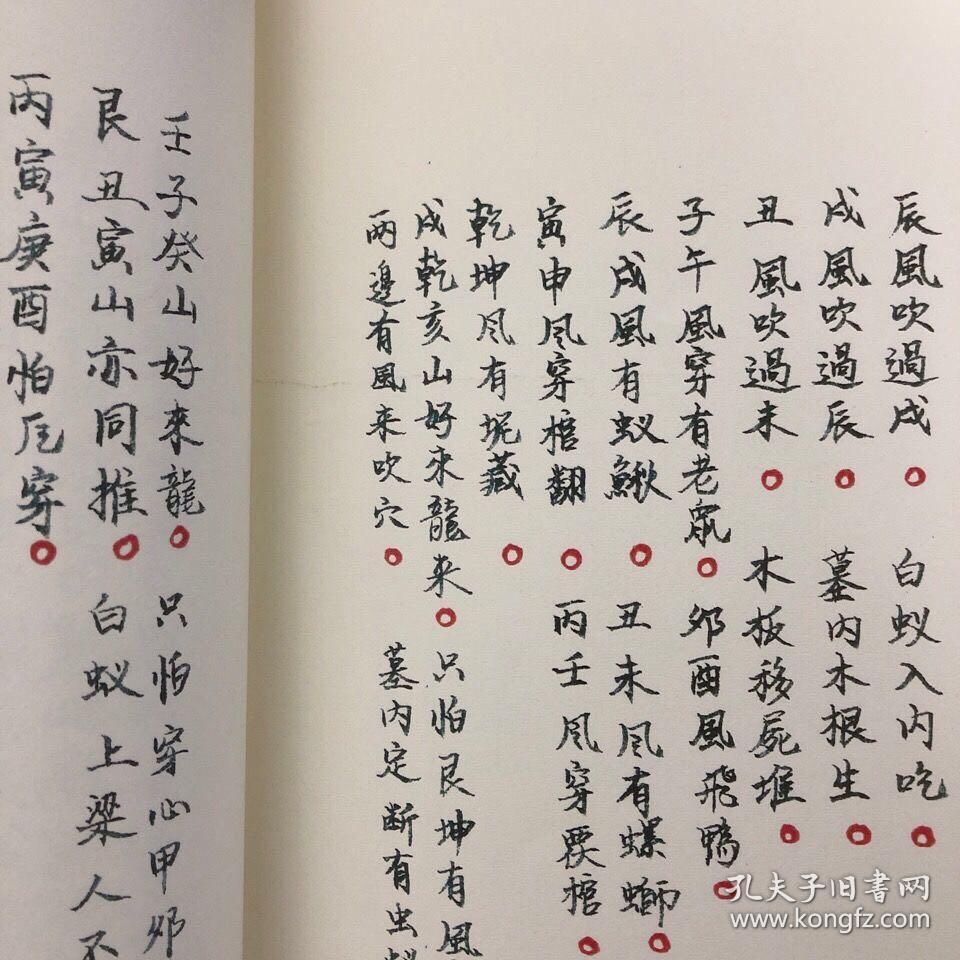 辰風吹過戌 白蚁入内吃
戌風吹過辰 墓内木根生
丑風吹過未 木板移屍堆
子午風穿有老鼠 卯酉風飛鴨
辰戌風有蚁鰍 丑未凮有螺螄
寅申凮穿棺翻 丙壬凮穿棺
乾坤凮有坭藏
戌乾亥山好來龍来 只怕艮坤有風
两邊有風来吹穴 墓内定断有虫蚁
壬子癸山好來龍 只怕穿心甲卯
艮丑寅山亦同推 白蚁上梁人不
丙寅庚酉怕凮穿
孔夫子旧书网
www.kongfz.com